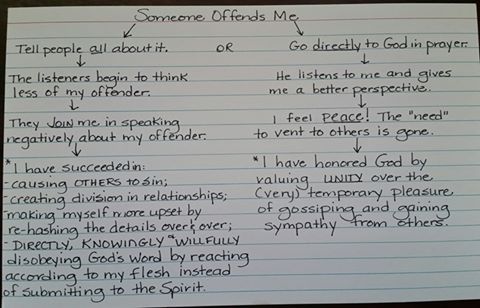 Someone Offends Me
Tell people all about it.
OR
Go directly to God in prayer.
The listeners begin to think
less of my offender.
He listens to me and gives
me a better perspective.
They Join me in speaking
negatively about my offender.
I feel Peace! The "need"
to vent to others is gone.
* I have succeeded in:
- causing OTHERS to sin;
- creating division in relationships;
- making myself more upset by
re-hashing the details over & over;
- DIRECTLY, KNOWINGLY & WILLFULLY
disobeying God's word by reacting
according to my flesh instead
of submitting to the Spirit.
* I have honored God by
valuing UNITY over the
(very) temporary pleasure
of gossiping and gaining
sympathy from others.